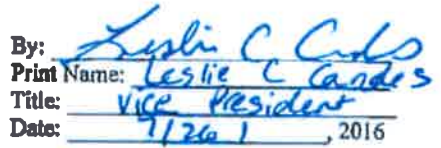 By: Leslie C Candes
Print Name: Leslie C Candes
Title: Vice President
Date: 7/26/ , 2016